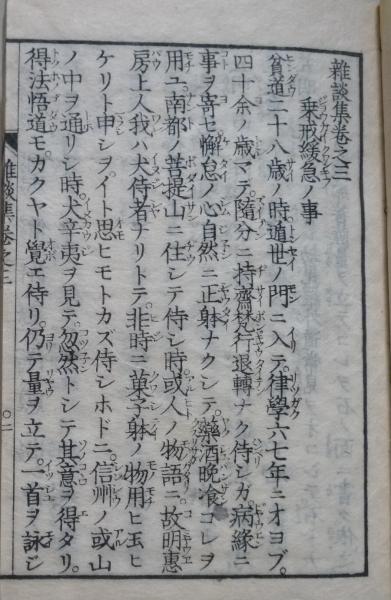 雜談集卷之三
乗戒緩急ノ事
貧道二十八歳ノ時遁世ノ門ニ入テ律學六七年ニオヨブ。
四十餘ノ歳マテ。隨分ニ持齋梵行退轉ナク侍シガ。病緣ニ
事ヲ寄セ懈怠ノ心自然ニ正躰ナクシテ。藥酒晚飡コレヲ
用ユ。南都ノ菩提山ニ住シテ侍シ時。或人ノ物語ニ。故明惠
房上人。我ハ犬侍者ナリトテ。非時ニ菓子躰ノ物用ヒ玉ヒ
ケリト申シヲイト思ヒモトカズ侍シホドニ。信州ノ或山
ノ中ヲ通リシ時。犬辛夷ヲ見テ。忽然トシテ其意ヲ得タリ。
得法悟道モカクヤト覺エ侍リ。仍テ量ヲ立テ。一首ヲ詠シ
雜談集卷之三
〇二